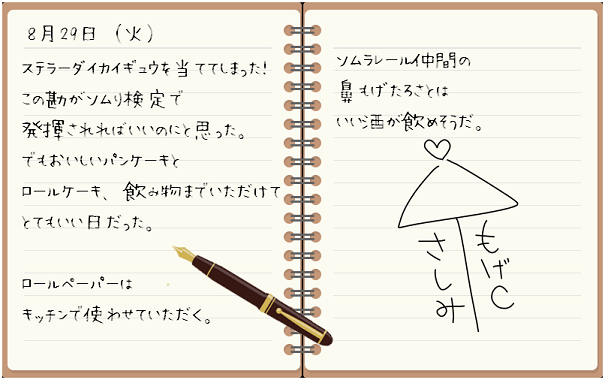 8月29日（火）
ステラーダイカイギュウを当ててしまった!
この勘がソムリ検定で
発揮されればいいのにと思った。
でもおいしいパンケーキと
ロールケーキ、飲み物までいただけて
とてもいい日だった。
ロールペーパーは
キッチンで使わせていただく。
ソムラレールイ仲間の
鼻もげたろさとは
いい酒が飲めそうだ。
もげC
さしみ